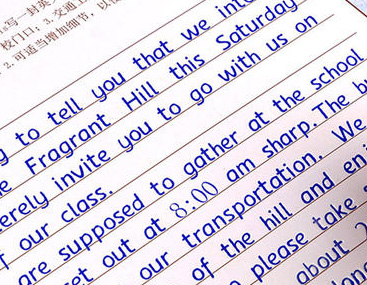 写一封英
校门口；3. 交通工
2. 可适当增加细节，以
to tell you that we
Fragrant Hill this Saturday
invite you to go with us on
our class.
are supposed to gather at the school
out at 8:00 am sharp. The
our transportation. We
of the hill and
please take
about